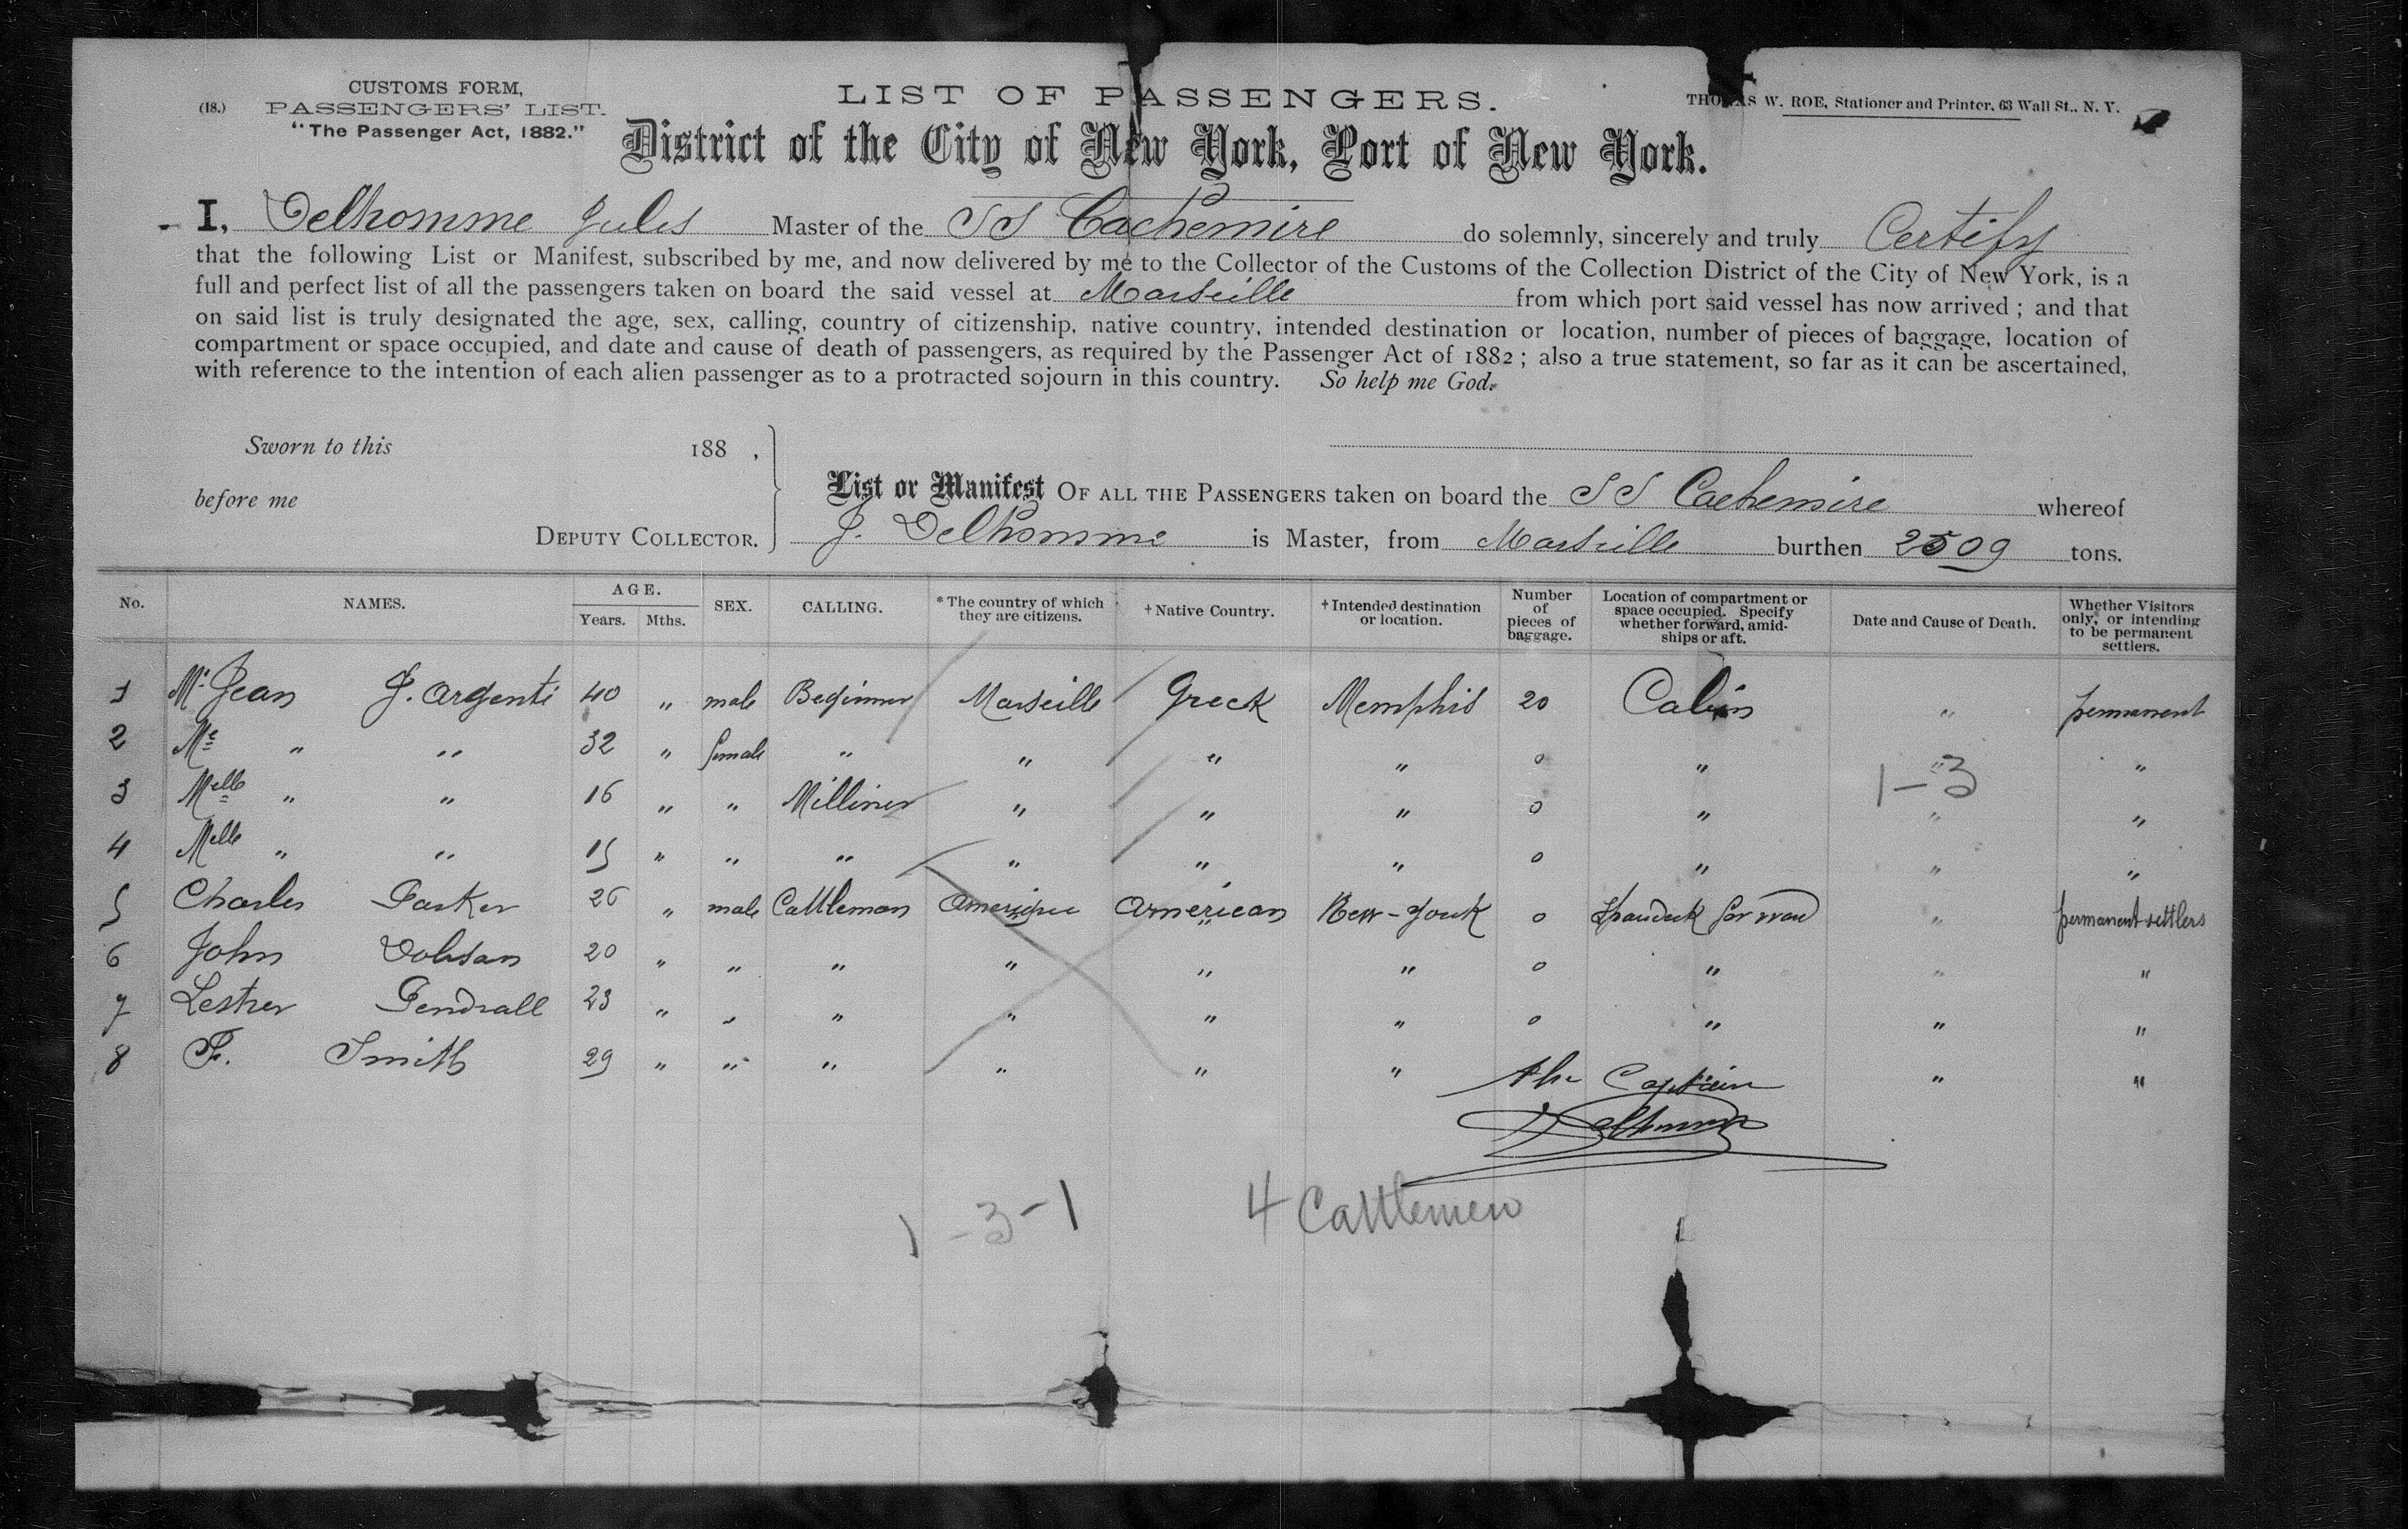 CUSTOMS FORM,
(18.) PASSENGERS' LIST.
"The Passenger Act, 1882."
LIST OF PASSENGERS.
THOMAS W. ROE, Stationer and Printer, 63 Wall St., N. Y.
District of the City of New York, Port of New York.
I, Delhomme Jules Master of the SS Cachemire do solemnly, sincerely and truly Certify
that the following List or Manifest, subscribed by me, and now delivered by me to the Collector of the Customs of the Collection District of the City of New York, is a
full and perfect list of all the passengers taken on board the said vessel at Marseille from which port said vessel has now arrived; and that
on said list is truly designated the age, sex, calling, country of citizenship, native country, intended destination or location, number of pieces of baggage, location of
compartment or space occupied, and date and cause of death of passengers, as required by the Passenger Act of 1882; also a true statement, so far as it can be ascertained,
with reference to the intention of each alien passenger as to a protracted sojourn in this country. So help me God.
Sworn to this 188 ,
before me
DEPUTY COLLECTOR.
List or Manifest OF ALL THE PASSENGERS taken on board the SS Cachemire whereof
J. Delhomme is Master, from Marseille burthen 2509 tons.
No. NAMES. AGE. Years. Mths. SEX. CALLING. * The country of which they are citizens. † Native Country. † Intended destination or location. Number of pieces of baggage. Location of compartment or space occupied. Specify whether forward, amidships or aft. Date and Cause of Death. Whether Visitors only, or intending to be permanent settlers.
1 Mr Jean J. Argenti 40 " male Beginner Marseille Greek Memphis 20 Cabin " permanent
2 Me " " 32 " female " " " " 0 " " "
3 Melle " " 16 " " Milliner " " " 0 " " "
1-3
4 Melle " " 15 " " " " " " 0 " " "
5 Charles Parker 26 " male Cattleman American New-York 0 forward " permanent settlers
6 John Dobson 20 " " " " " " 0 " " "
7 Lestrer Pendrall 23 " " " " " " 0 " " "
8 F. Smith 29 " " " " " " " "
The Captain
Delhomme
1-3-1 4 Cattlemen